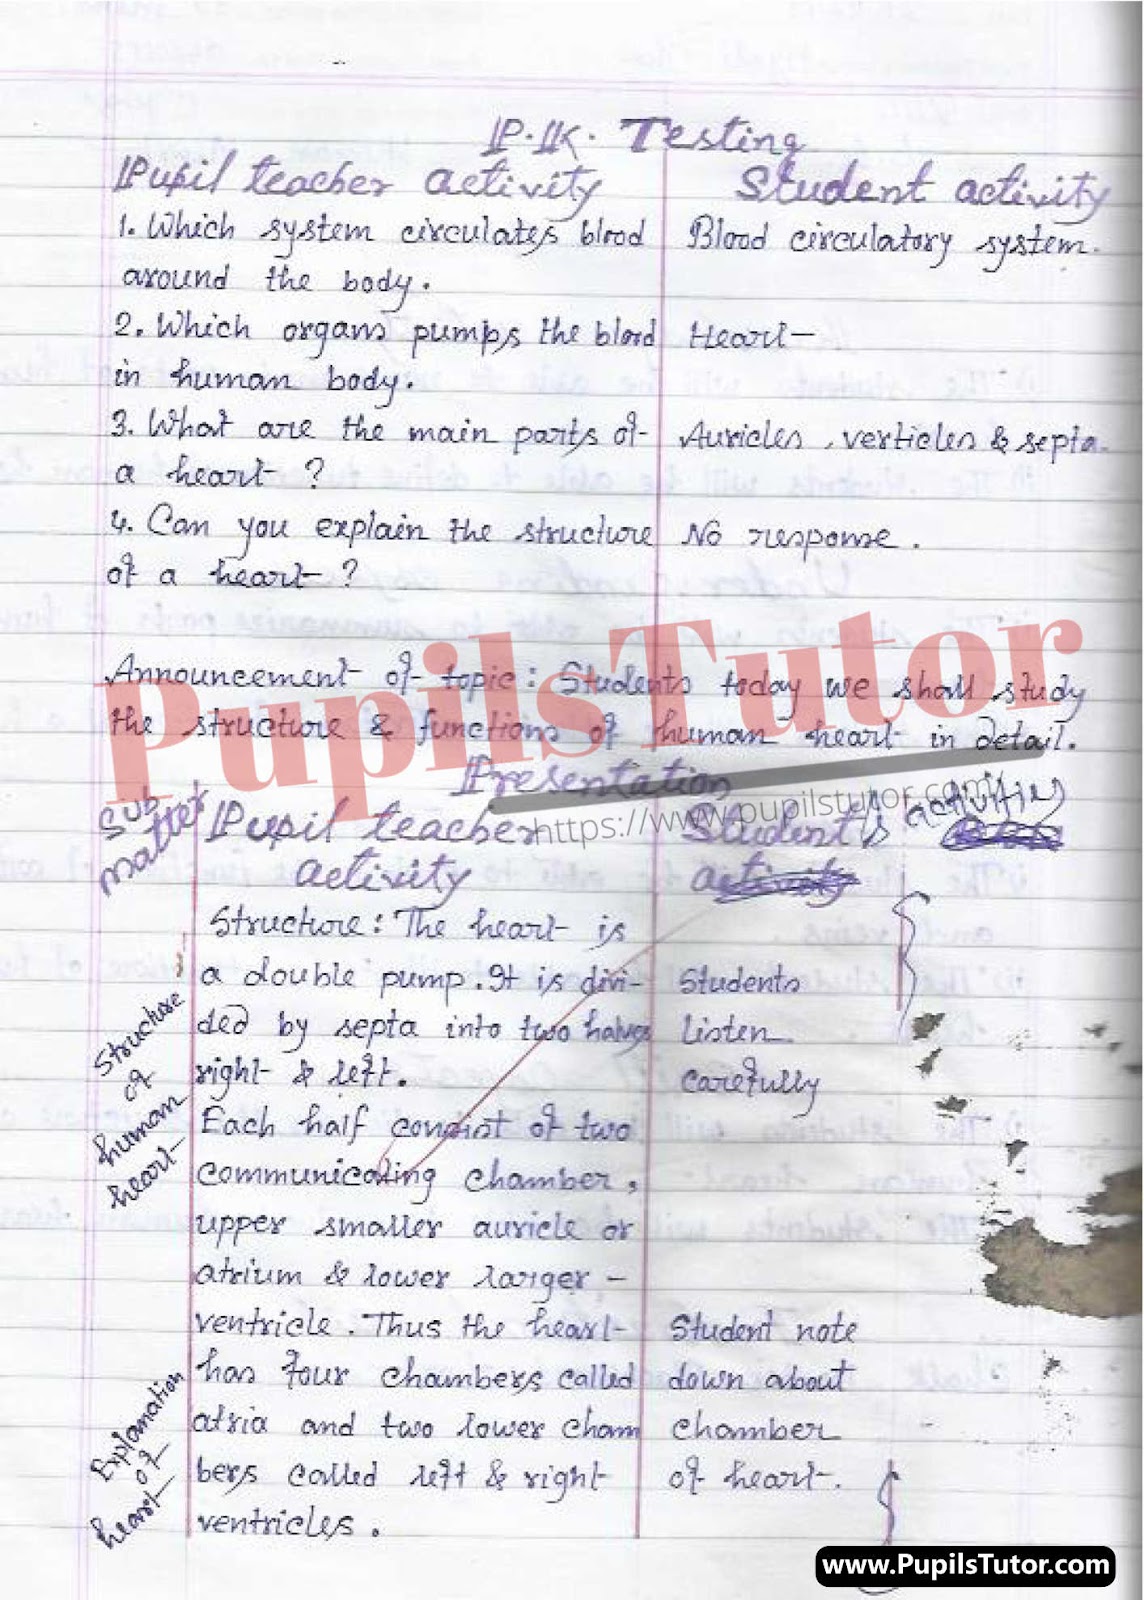 P.K. Testing
Pupil teacher activity
Student activity
1. Which system circulates blood
around the body.
Blood circulatory system.
2. Which organs pumps the blood
in human body.
Heart
3. What are the main parts of
a heart ?
Auricles , verticles & septa.
4. Can you explain the structure
of a heart ?
No response .
Announcement of topic : Students today we shall study
the structure & functions of human heart in detail.
PupilsTutor
https://www.pupilstutor.com/
Presentation
Sub matter
Pupil teacher
activity
Student's activities
activity
Structure of human heart
Structure : The heart is
a double pump. It is divi-
ded by septa into two halves
right & left.
Each half consist of two
communicating chamber ,
upper smaller auricle or
atrium & lower larger -
ventricle . Thus the heart
has four chambers called
atria and two lower cham
bers called left & right
ventricles .
Students
listen
carefully
Explanation of heart
Student note
down about
chamber
of heart .
www.PupilsTutor.com